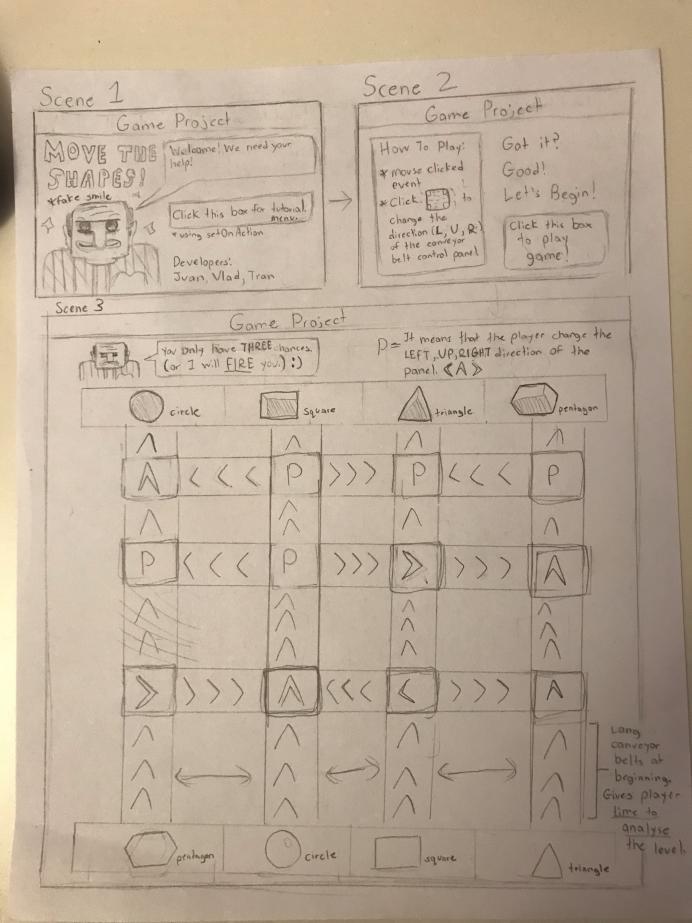 Scene 1
Game Project
MOVE THE
SHAPES!
*fake smile
Welcome! We need your
help!
Click this box for tutorial
menu.
*using setOnAction
Developers:
Juan, Vlad, Tran
Scene 2
Game Project
How To Play:
* mouse clicked
event
* Click to
change the
direction (L, U, R)
of the conveyor
belt control panel
Got it?
Good!
Let's Begin!
Click this box
to play
game!
Scene 3
Game Project
You only have THREE chances.
(or I will FIRE you.) :)
P = It means that the player change the
LEFT, UP, RIGHT direction of the
panel. <A>
circle
square
triangle
pentagon
P
P
P
P
P
Long
conveyor
belts at
beginning.
Gives player
time to
analyse
the level.
pentagon
circle
square
triangle